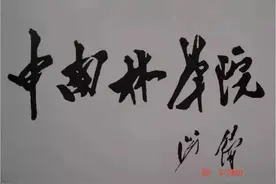 中南林学院